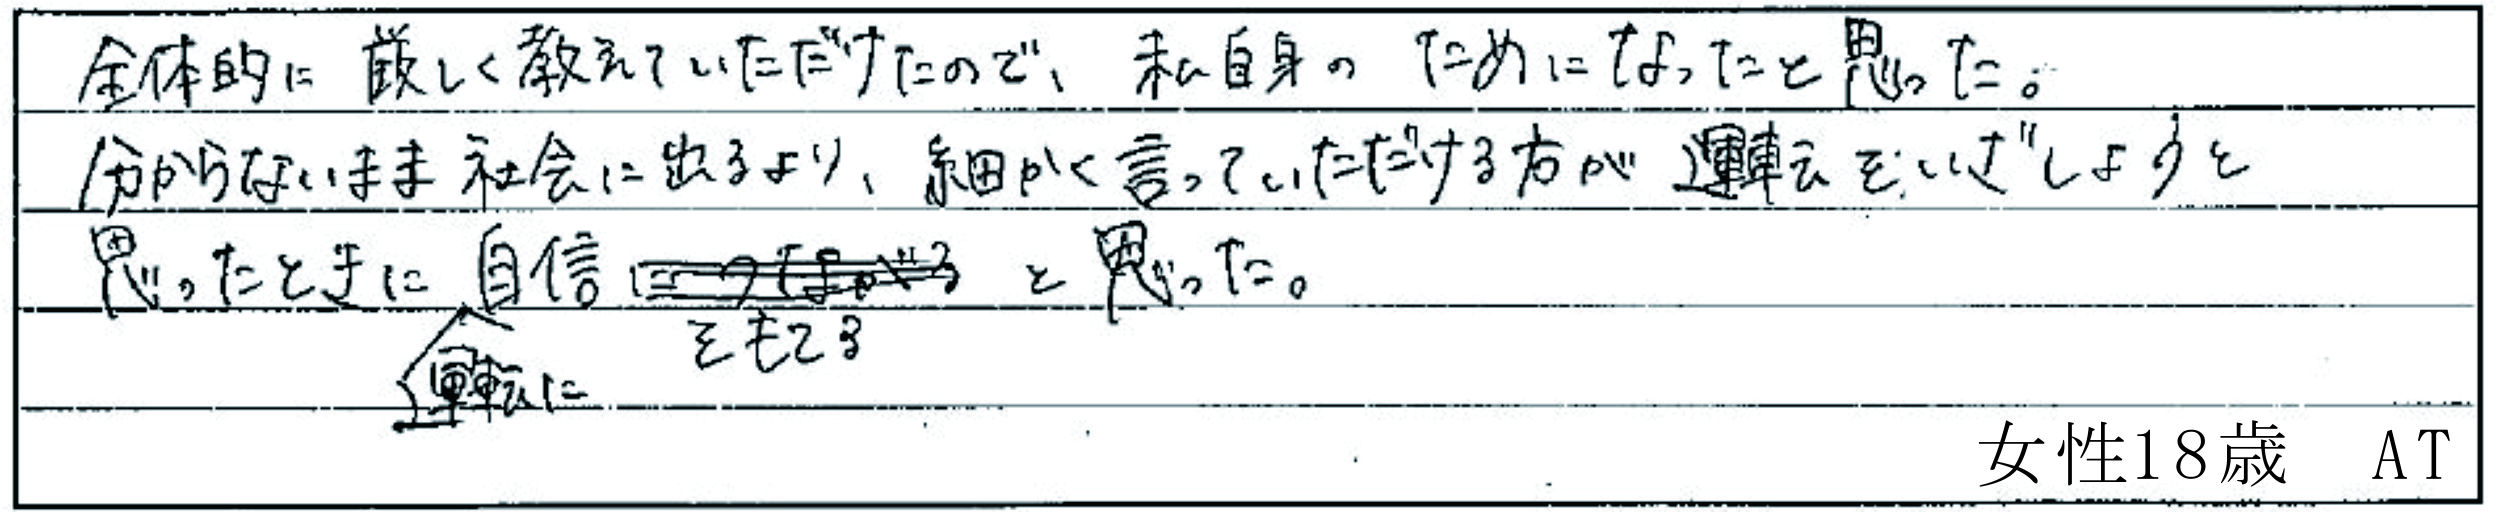 全体的に厳しく教えていただけたので、私自身のためになったと思った。
分からないまま社会に出るより、細かく言っていただける方が運転をいざしようと
思ったときに自信につながると思った。
をもてる
運転に
女性18歳 AT